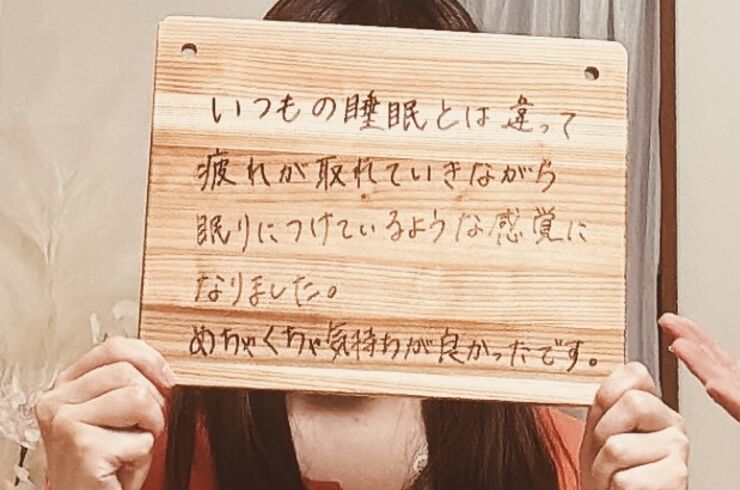 いつもの睡眠とは違って
疲れが取れていきながら
眠りにつけているような感覚に
なりました。
めちゃくちゃ気持ちが良かったです。